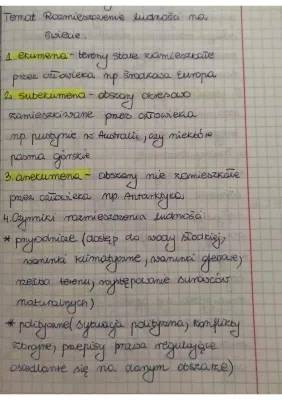 Temat Rozmieszczenie ludności na
świecie.
1. ekumena - tereny stale zamieszkałe
przez człowieka np środkowa Europa
2. subekumena - obszary okresowo
zamieszkiwane przez człowieka
np pustynie w Australii, czy niektóre
pasma górskie
3. anekumena - obszary nie zamieszkałe
przez człowieka np. Antarktyka.
4. Czynniki rozmieszczenia ludności
* przyrodnicze (dostęp do wody słodkiej,
warunki klimatyczne, warunki glebowe,
rzeźba terenu, występowanie surowców
naturalnych)
* polityczne (sytuacja polityczna, konflikty
zbrojne, przepisy prawa regulujące
osiedlanie się na danym obszarze)